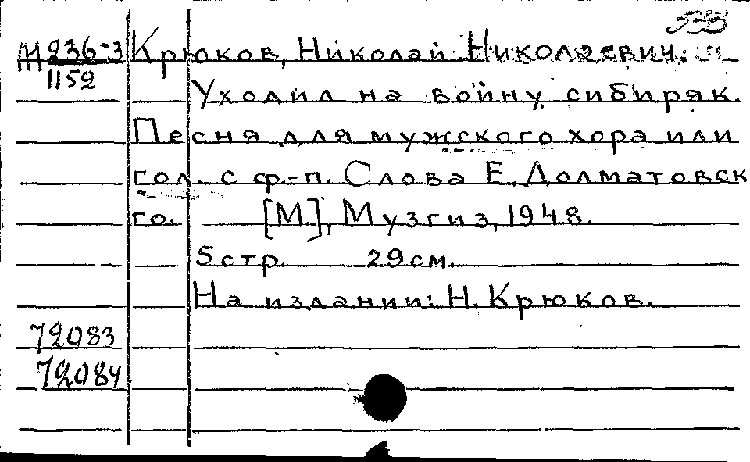 М 236-3 Крюков, Николай Николаевич.
1152
Уходил на войну сибиряк.
Песня для мужского хора или
гол. с ф-п. Слова Е. Долматовск
го. [М.], Музгиз, 1948.
5 стр. 29 см.
На издании: Н. Крюков.
72083
72084